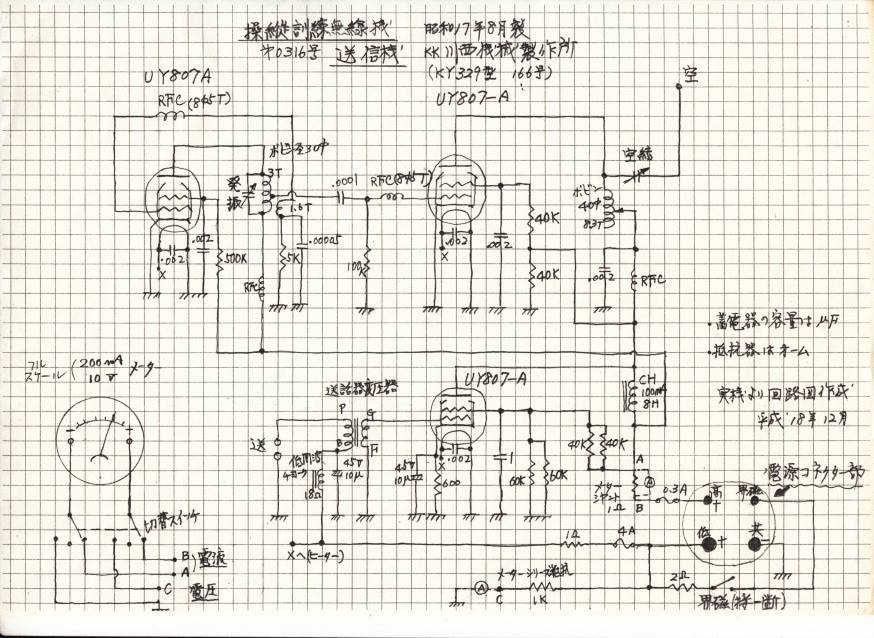 操縦訓練無線機 昭和17年8月製
オ0316号 送信機 KK川西機械製作所
(KY329型 166号)
UY807A
UY807-A
空
RFC(845T)
ボビン径30中
3T
発振
1.5T
.0001
RFC(845T)
空結
ボビン
40中
8.3T
40K
.002
.002
500K
5K
.00005
.002
.002
100K
40K
.002
RFC
RFC
・蓄電器の容量はμF
・抵抗器はオーム
実機より回路図作成
平成18年12月
フル
スケール
200mA
10V
メーター
送話器変圧器
UY807-A
CH
100mA
8H
P
G
B
F
送
低周波
チョーク
18Ω
45V
10μ
45V
10μ
X
.002
600
.1
60K
60K
40K
40K
A
メーター
シャント
1Ω
B
A
0.3A
電源コネクター部
高
+
界磁
低
+
共
-
切替スイッチ
B
電流
A
C
電圧
Xへ(ヒーター)
1Ω
4A
A
C
メーターシリーズ抵抗
1K
2Ω
界磁(接-断)